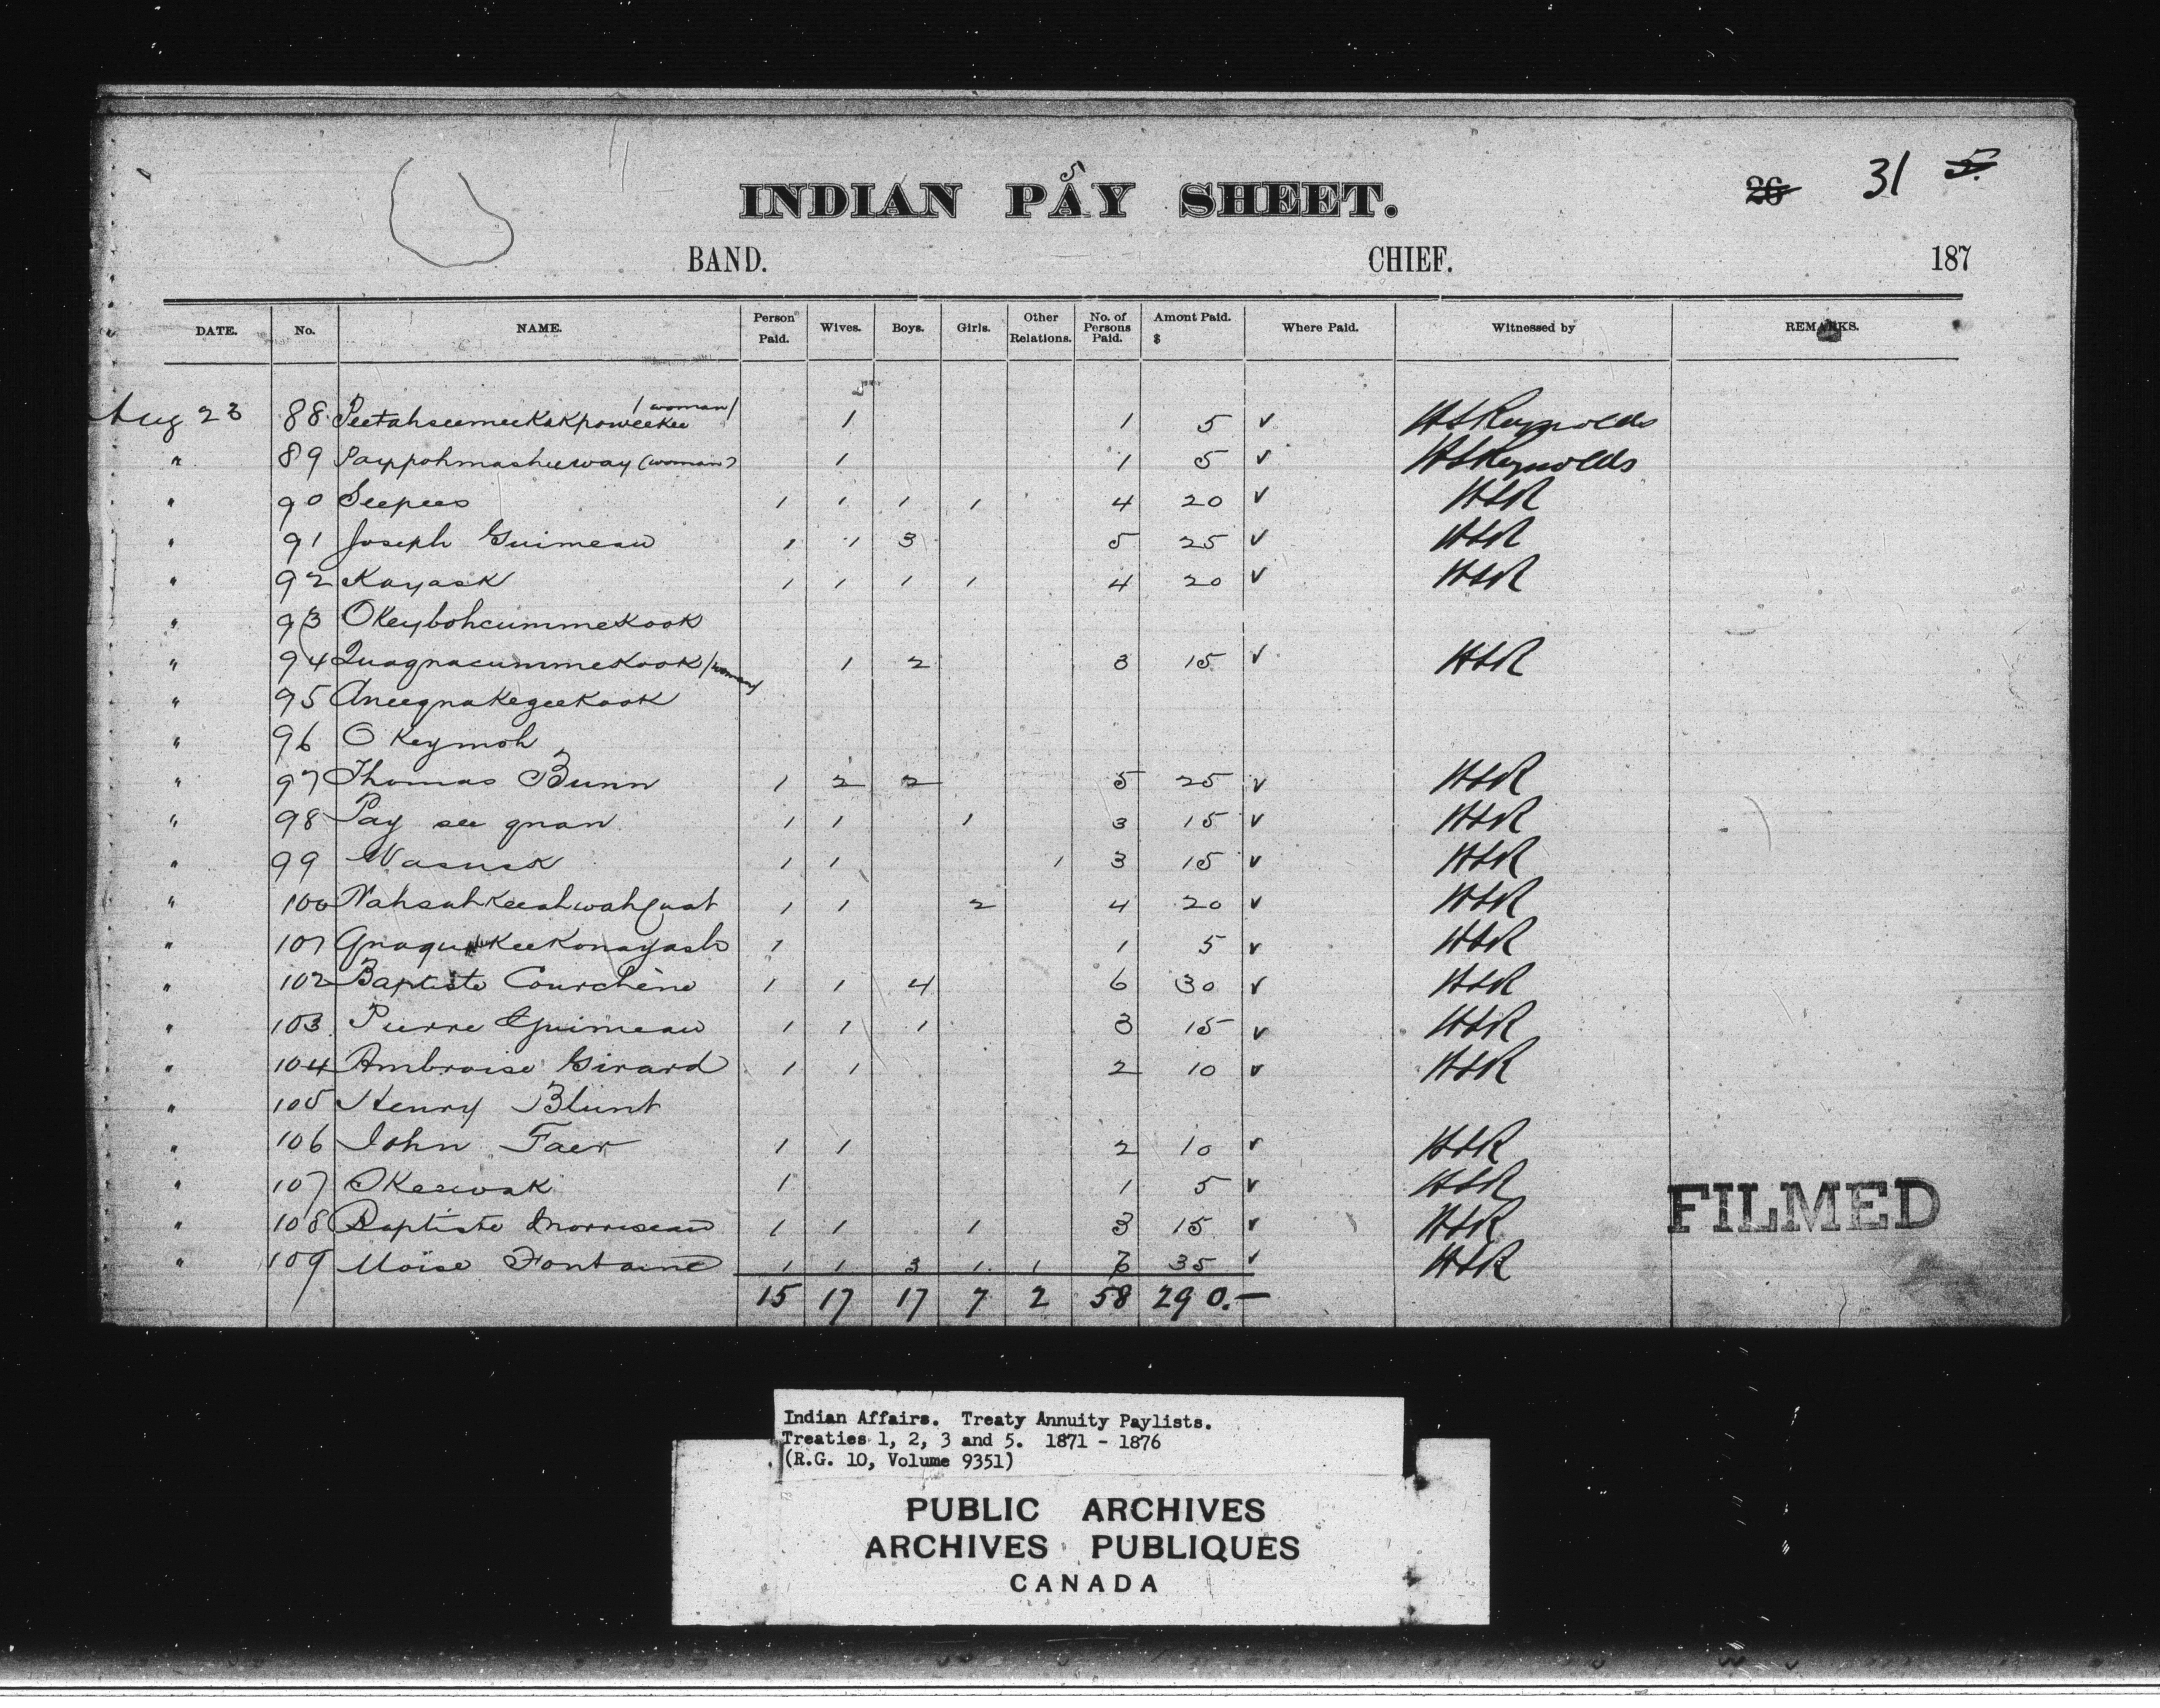 5
31 26 5.
INDIAN PAY SHEET.
BAND. CHIEF. 187
DATE. No. NAME. Person Paid. Wives. Boys. Girls. Other Relations. No. of Persons Paid. Amont Paid. $ Where Paid. Witnessed by REMARKS.
Aug 23 88 Peetahseemeekakpoweekee (woman) 1 1 5 ✓ HSReynolds
" 89 Payppohmasheeway (woman) 1 1 5 ✓ HSReynolds
" 90 Seepees 1 1 1 1 4 20 ✓ HSR
" 91 Joseph Guimeau 1 1 3 5 25 ✓ HSR
" 92 Kayask 1 1 1 1 4 20 ✓ HSR
" 93 Okeybohcummekook
" 94 Quaqnacummekook (woman) 1 2 3 15 ✓ HSR
" 95 Aneeqnakegeekook
" 96 O Keymoh
" 97 Thomas Bunn 1 2 2 5 25 ✓ HSR
" 98 Pay see gnan 1 1 1 3 15 ✓ HSR
" 99 Wasusk 1 1 1 3 15 ✓ HSR
" 100 Nahsuhkeeshwahquat 1 1 2 4 20 ✓ HSR
" 101 1 1 5 ✓ HSR
" 102 Baptiste Courchène 1 1 4 6 30 ✓ HSR
" 103 Pierre Guimeau 1 1 1 3 15 ✓ HSR
" 104 Ambroise Girard 1 1 2 10 ✓ HSR
" 105 Henry Blunt
" 106 John Faer 1 1 2 10 ✓ HSR
" 107 Okeewak 1 1 5 ✓ HSR
" 108 Baptiste Morriseau 1 1 1 3 15 ✓ HSR
" 109 Moïse Fontaine 1 1 3 1 1 7 35 ✓ HSR
15 17 17 7 2 58 290.—
FILMED
Indian Affairs. Treaty Annuity Paylists.
Treaties 1, 2, 3 and 5. 1871 - 1876
(R.G. 10, Volume 9351)
PUBLIC ARCHIVES
ARCHIVES PUBLIQUES
CANADA